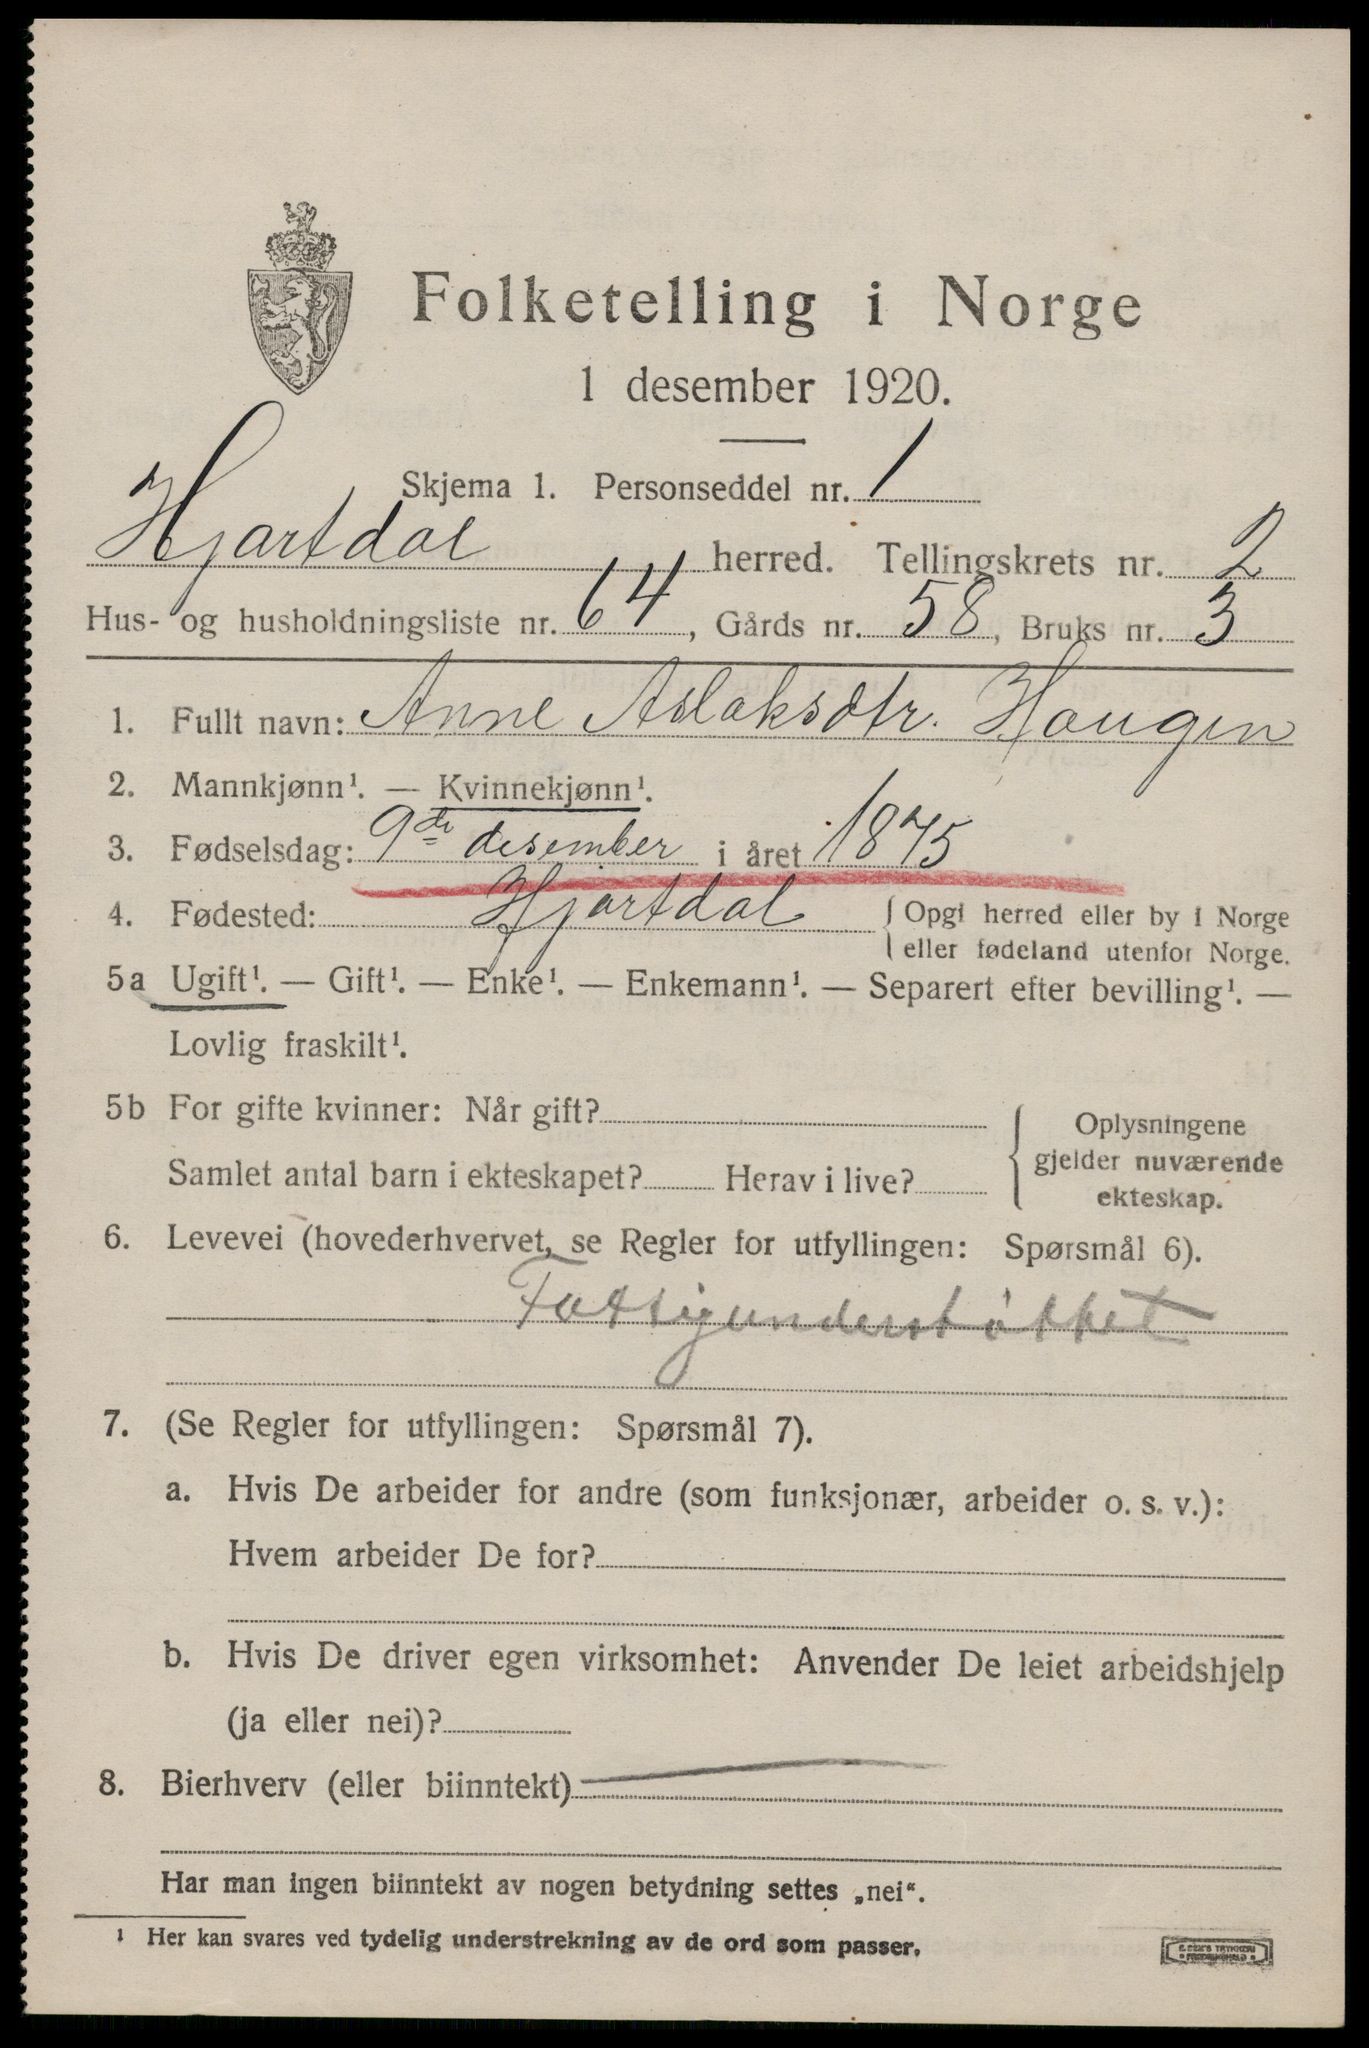 Folketelling i Norge
1 desember 1920.
Skjema 1. Personseddel nr. 1
Hjartdal herred. Tellingskrets nr. 2
Hus- og husholdningsliste nr. 64, Gårds nr. 58, Bruks nr. 3
1. Fullt navn: Anne Aslaksdtr. Haugen
2. Mannkjønn¹. — Kvinnekjønn¹.
3. Fødselsdag: 9de desember i året 1875
4. Fødested: Hjartdal { Opgi herred eller by i Norge
eller fødeland utenfor Norge.
5a Ugift¹. — Gift¹. — Enke¹. — Enkemann¹. — Separert efter bevilling¹. —
Lovlig fraskilt¹.
5b For gifte kvinner: Når gift?
Samlet antal barn i ekteskapet? Herav i live?
Oplysningene
gjelder nuværende
ekteskap.
6. Levevei (hovederhvervet, se Regler for utfyllingen: Spørsmål 6).
Fattigunderstøttet
7. (Se Regler for utfyllingen: Spørsmål 7).
a. Hvis De arbeider for andre (som funksjonær, arbeider o. s. v.):
Hvem arbeider De for?
b. Hvis De driver egen virksomhet: Anvender De leiet arbeidshjelp
(ja eller nei)?
8. Bierhverv (eller biinntekt)
Har man ingen biinntekt av nogen betydning settes „nei“.
¹ Her kan svares ved tydelig understrekning av de ord som passer.